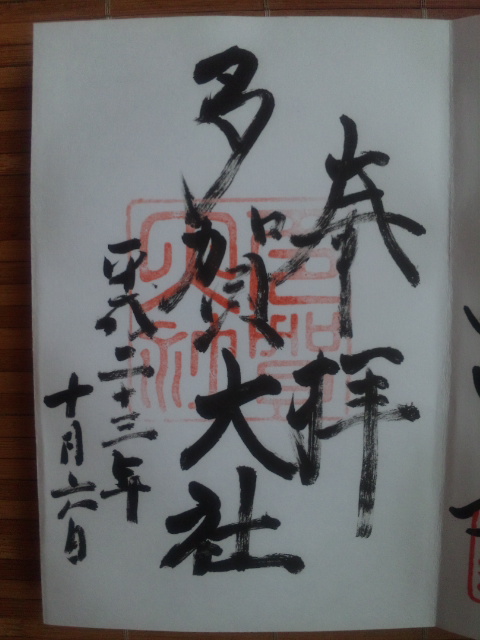 奉拝
多賀大社
平成二十三年
十月六日